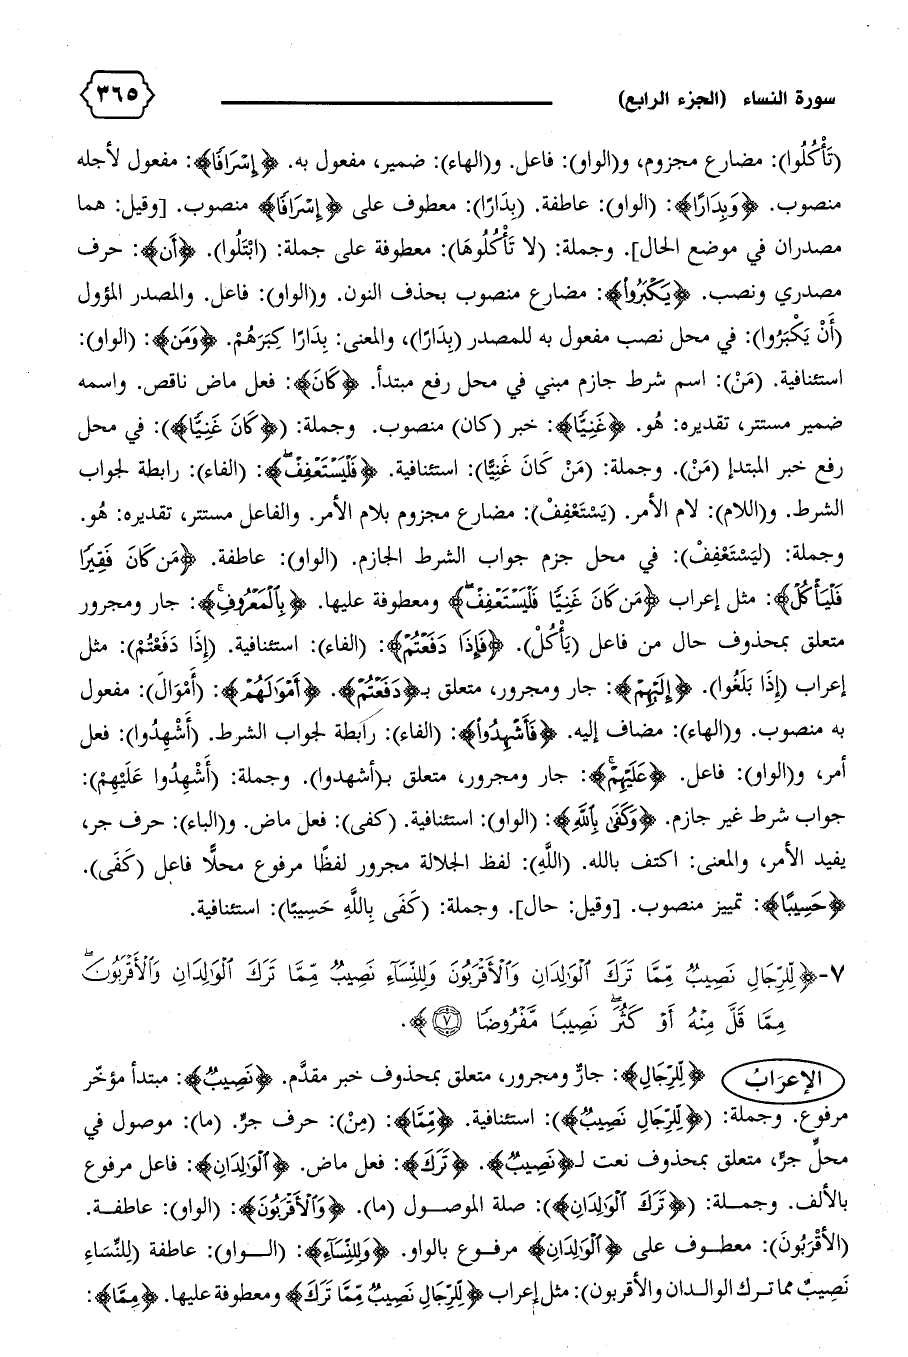 سورة النساء (الجزء الرابع)
٣٦٥
(تَأْكُلُوا): مضارع مجزوم، و(الواو): فاعل. و(الهاء): ضمير، مفعول به. ﴿إِسْرَافًا﴾: مفعول لأجله
منصوب. ﴿وَبِدَارًا﴾: (الواو): عاطفة. (بِدَارًا): معطوف على ﴿إِسْرَافًا﴾ منصوب. [وقيل: هما
مصدران في موضع الحال]. وجملة: (لا تَأْكُلُوهَا): معطوفة على جملة: (ابْتَلُوا). ﴿أَن﴾: حرف
مصدري ونصب. ﴿يَكْبَرُوا۟﴾: مضارع منصوب بحذف النون. و(الواو): فاعل. والمصدر المؤول
(أَنْ يَكْبَرُوا): في محل نصب مفعول به للمصدر (بِدَارًا)، والمعنى: بِدَارًا كِبَرَهُمْ. ﴿وَمَن﴾: (الواو):
استئنافية. (مَنْ): اسم شرط جازم مبني في محل رفع مبتدأ. ﴿كَانَ﴾: فعل ماض ناقص. واسمه
ضمير مستتر، تقديره: هُو. ﴿غَنِيًّا﴾: خبر (كان) منصوب. وجملة: (﴿كَانَ غَنِيًّا﴾): في محل
رفع خبر المبتدإ (مَنْ). وجملة: (مَنْ كَانَ غَنِيًّا): استئنافية. ﴿فَلْيَسْتَعْفِفْ ۖ﴾: (الفاء): رابطة لجواب
الشرط. و(اللام): لام الأمر. (يَسْتَعْفِفْ): مضارع مجزوم بلام الأمر. والفاعل مستتر، تقديره: هُو.
وجملة: (ليَسْتَعْفِفْ): في محل جزم جواب الشرط الجازم. (الواو): عاطفة. ﴿مَن كَانَ فَقِيرًا
فَلْيَأْكُلْ﴾: مثل إعراب ﴿مَن كَانَ غَنِيًّا فَلْيَسْتَعْفِفْ ۖ﴾ ومعطوفة عليها. ﴿بِٱلْمَعْرُوفِ ۚ﴾: جار ومجرور
متعلق بمحذوف حال من فاعل (يَأْكُلْ). ﴿فَإِذَا دَفَعْتُمْ﴾: (الفاء): استئنافية. (إِذَا دَفَعْتُمْ): مثل
إعراب (إِذَا بَلَغُوا). ﴿إِلَيْهِمْ﴾: جار ومجرور، متعلق بـ﴿دَفَعْتُمْ﴾. ﴿أَمْوَٰلَهُمْ﴾: (أَمْوَالَ): مفعول
به منصوب. و(الهاء): مضاف إليه. ﴿فَأَشْهِدُوا۟﴾: (الفاء): رابطة لجواب الشرط. (أَشْهِدُوا): فعل
أمر، و(الواو): فاعل. ﴿عَلَيْهِمْ ۚ﴾: جار ومجرور، متعلق بـ(أشهدوا). وجملة: (أَشْهِدُوا عَلَيْهِمْ):
جواب شرط غير جازم. ﴿وَكَفَىٰ بِٱللَّهِ﴾: (الواو): استئنافية. (كفى): فعل ماض. و(الباء): حرف جر،
يفيد الأمر، والمعنى: اكتف بالله. (اللَّهِ): لفظ الجلالة مجرور لفظًا مرفوع محلًّا فاعل (كَفَى).
﴿حَسِيبًا﴾: تمييز منصوب. [وقيل: حال]. وجملة: (كَفَى بِاللَّهِ حَسِيبًا): استئنافية.
٧-﴿لِّلرِّجَالِ نَصِيبٌ مِّمَّا تَرَكَ ٱلْوَٰلِدَانِ وَٱلْأَقْرَبُونَ وَلِلنِّسَآءِ نَصِيبٌ مِّمَّا تَرَكَ ٱلْوَٰلِدَانِ وَٱلْأَقْرَبُونَ
مِمَّا قَلَّ مِنْهُ أَوْ كَثُرَ ۚ نَصِيبًا مَّفْرُوضًا ٧﴾.
الإعرَابُ ﴿لِّلرِّجَالِ﴾: جارٌّ ومجرور، متعلق بمحذوف خبر مقدَّم. ﴿نَصِيبٌ﴾: مبتدأ مؤخّر
مرفوع. وجملة: (﴿لِّلرِّجَالِ نَصِيبٌ﴾): استئنافية. ﴿مِّمَّا﴾: (مِنْ): حرف جرّ. (ما): موصول في
محلِّ جرٍّ، متعلق بمحذوف نعت لـ﴿نَصِيبٌ﴾. ﴿تَرَكَ﴾: فعل ماض. ﴿ٱلْوَٰلِدَانِ﴾: فاعل مرفوع
بالألف. وجملة: (﴿تَرَكَ ٱلْوَٰلِدَانِ﴾): صلة الموصول (ما). ﴿وَٱلْأَقْرَبُونَ﴾: (الواو): عاطفة.
(الأَقْرَبُونَ): معطوف على ﴿ٱلْوَٰلِدَانِ﴾ مرفوع بالواو. ﴿وَلِلنِّسَآءِ﴾: (الواو): عاطفة (لِلنِّسَاءِ
نَصِيبٌ مما ترك الوالدان والأقربون): مثل إعراب ﴿لِّلرِّجَالِ نَصِيبٌ مِّمَّا تَرَكَ﴾ ومعطوفة عليها. ﴿مِمَّا﴾: